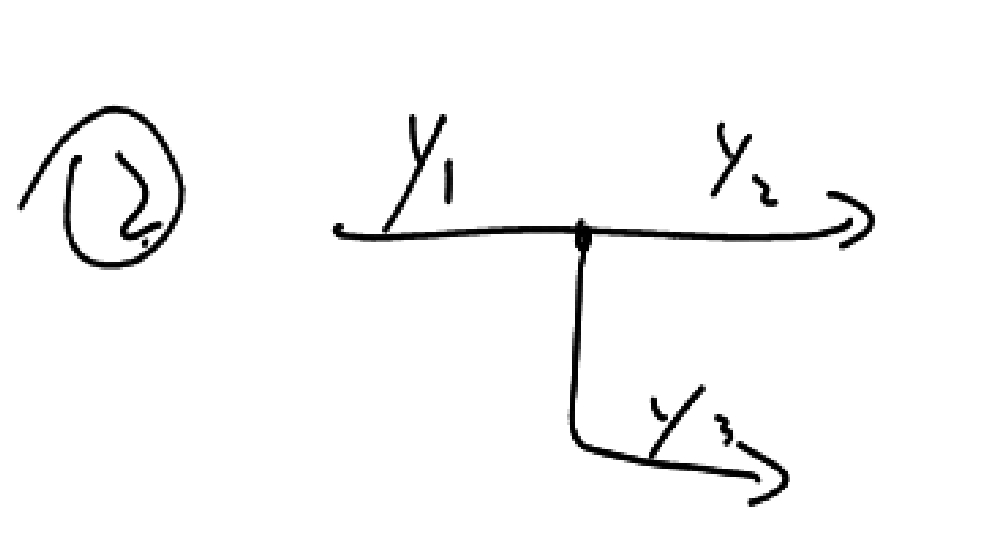 12.
y1
y2
y3